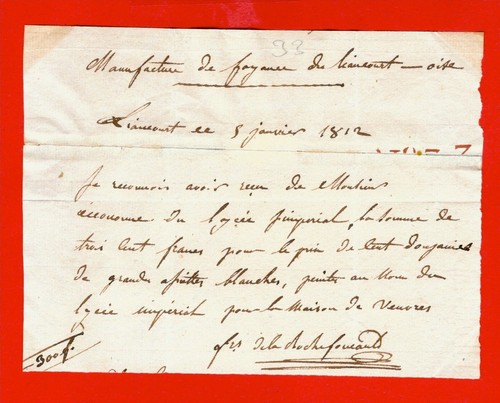 33
Manufacture de fayance de Liancourt – oise
Liancourt ce 5 janvier 1812
Je reconnois avoir reçu de Monsieur
œconome du lycée impérial, la somme de
trois cent francs pour le prix de cent douzaines
de grandes assiettes blanches, peintes au nom du
lycée impérial pour la maison de Vanvres
300 f.
frs de la Rochefoucauld